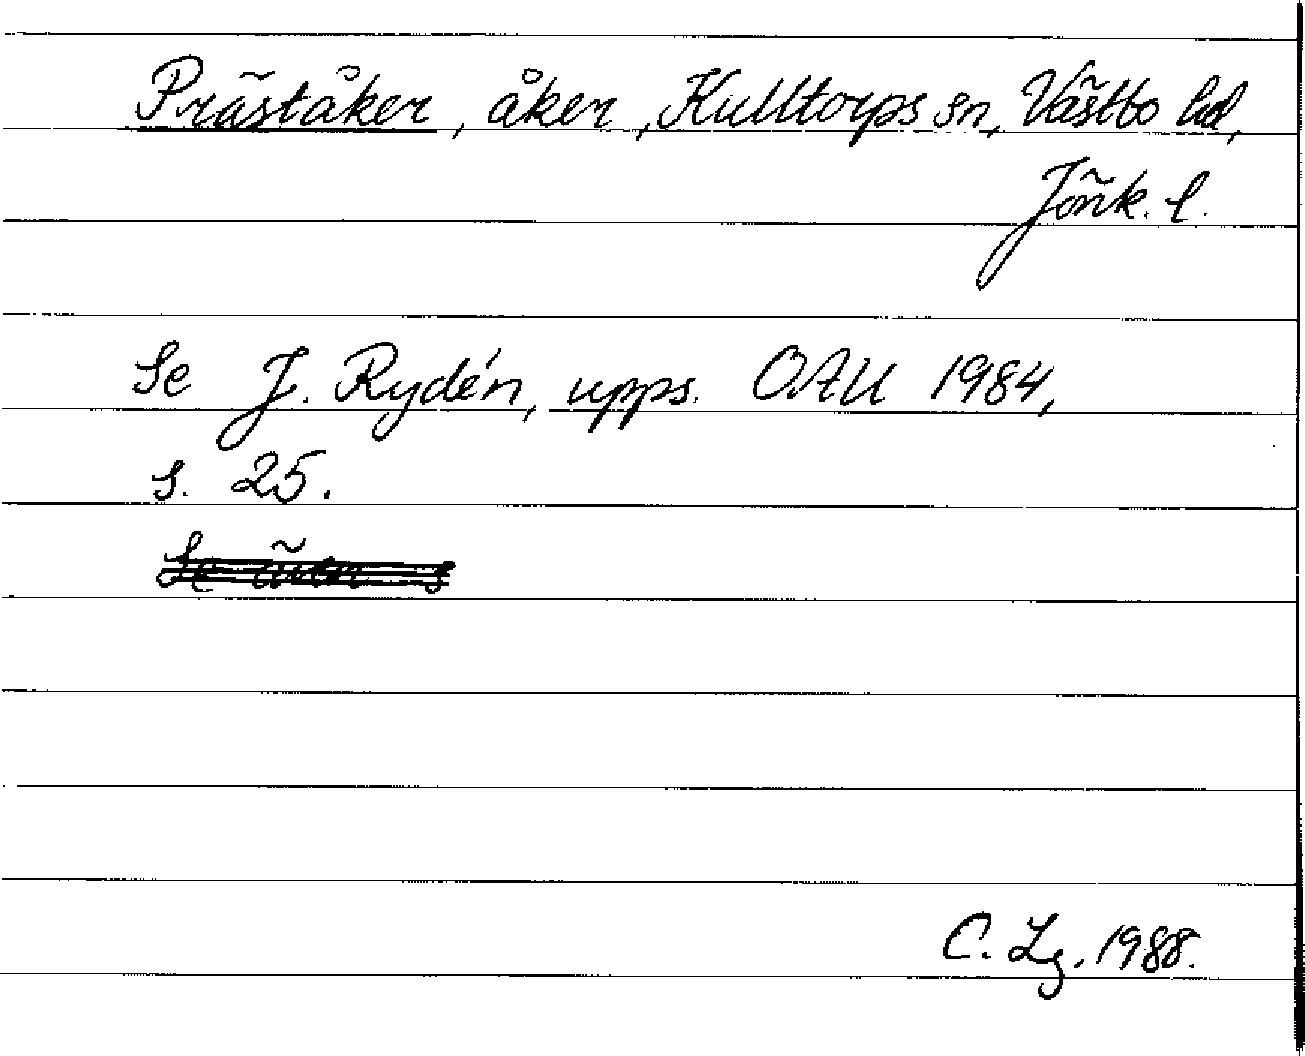 Präståker, åker, Kulltorps sn, Västbo hd,
Jönk. l.
Se J. Rydén, upps. OAU 1984,
s. 25.
Se även s
C. Lg. 1988.